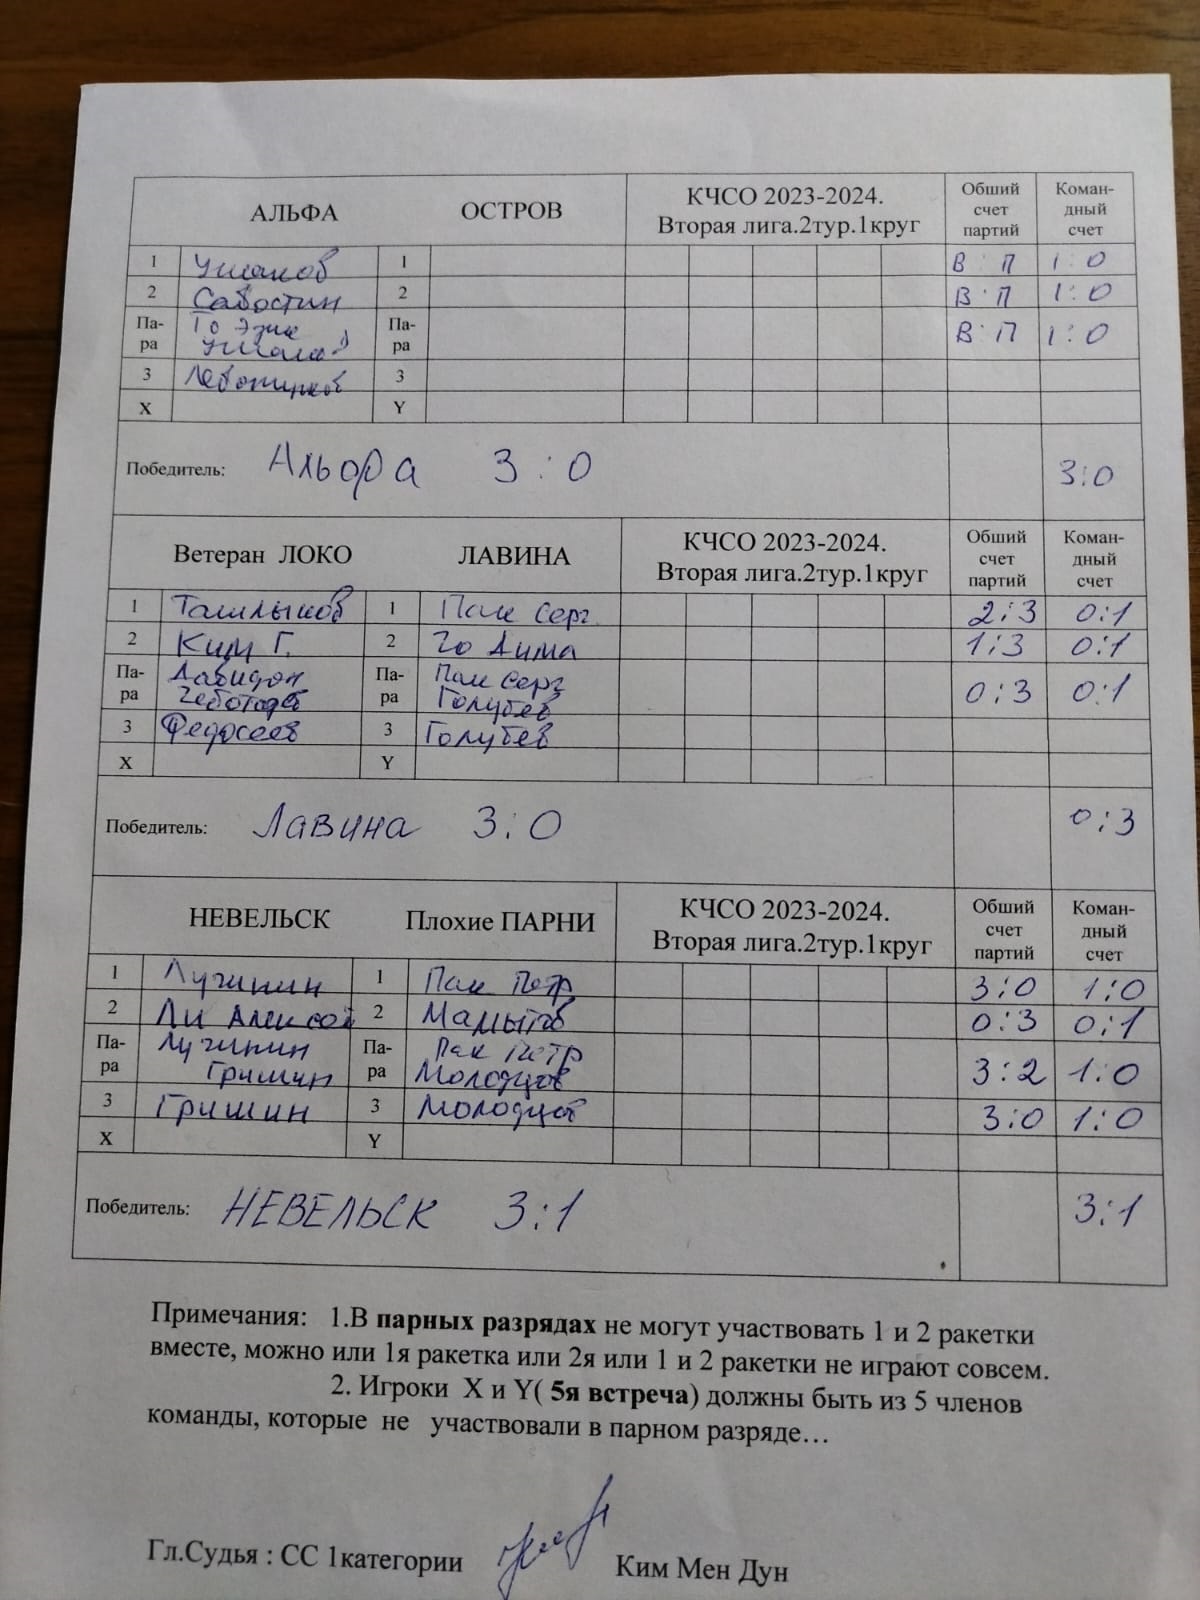 АЛЬФА ОСТРОВ КЧСО 2023-2024. Вторая лига.2тур.1круг Обший счет партий Коман-дный счет
1 Ушаков 1 В : П 1:0
2 Савостин 2 В : П 1:0
Па-ра То Эрик Ушаков Па-ра В : П 1:0
3 3
X Y
Победитель: Альфа 3:0 3:0
Ветеран ЛОКО ЛАВИНА КЧСО 2023-2024. Вторая лига.2тур.1круг Обший счет партий Коман-дный счет
1 Ташлыков 1 Пак Серг. 2:3 0:1
2 Ким Г. 2 Го Дима 1:3 0:1
Па-ра Давидон Чеботарёв Па-ра Пак Серг Голубев 0:3 0:1
3 Федосеев 3 Голубев
X Y
Победитель: Лавина 3:0 0:3
НЕВЕЛЬСК Плохие ПАРНИ КЧСО 2023-2024. Вторая лига.2тур.1круг Обший счет партий Коман-дный счет
1 Лучинин 1 Пак Петр 3:0 1:0
2 Ли Алексей 2 Мамытов 0:3 0:1
Па-ра Лучинин Гришин Па-ра Пак Петр Молодцов 3:2 1:0
3 Гришин 3 Молодцов 3:0 1:0
X Y
Победитель: НЕВЕЛЬСК 3:1 3:1
Примечания: 1.В парных разрядах не могут участвовать 1 и 2 ракетки
вместе, можно или 1я ракетка или 2я или 1 и 2 ракетки не играют совсем.
2. Игроки X и Y( 5я встреча) должны быть из 5 членов
команды, которые не участвовали в парном разряде…
Гл.Судья : СС 1категории Ким Мен Дун